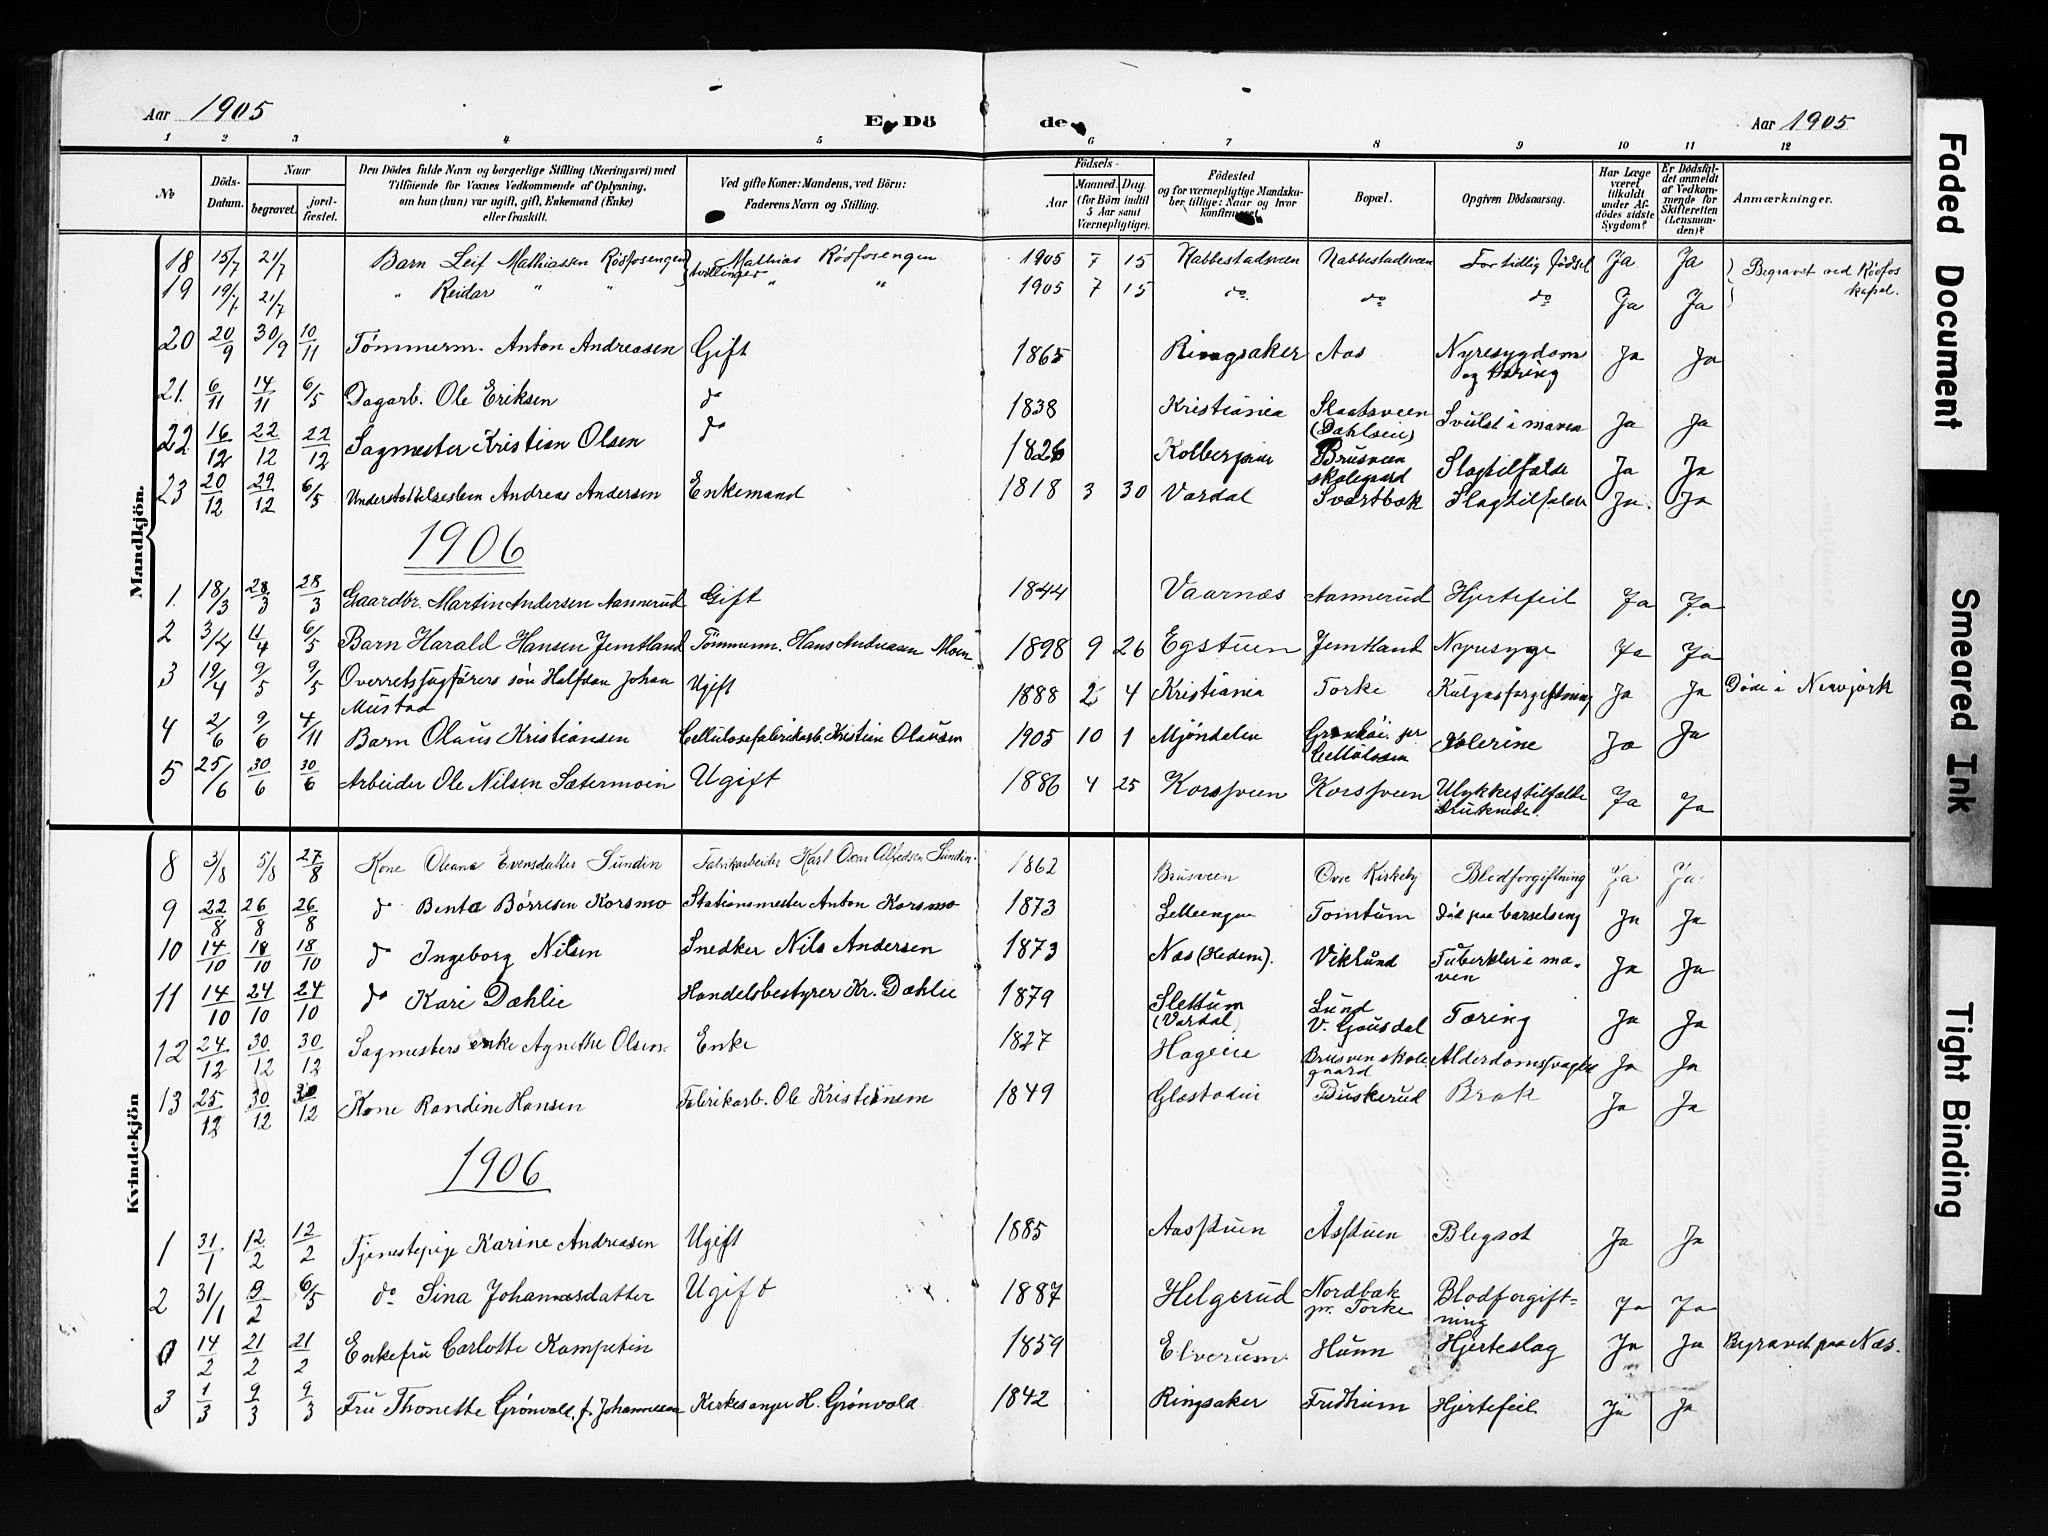 Aar 1905 E. Dö de. Aar 1905
1 2 3 4 5 6 7 8 9 10 11 12
№ Döds-Datum. Naar begravet. jord-fæstet. Den Dödes fulde Navn og borgerlige Stilling (Næringsvei) med Tilföiende for Voxnes Vedkommende af Oplysning, om han (hun) var ugift, gift, Enkemand (Enke) eller fraskilt. Ved gifte Koner: Mandens, ved Börn: Faderens Navn og Stilling. Födsels- Aar Maaned. Dag. (for Börn indtil 5 Aar samt Værnepligtige). Födested og for værnepligtige Mandskaber tillige: Naar og hvor konfirmeret. Bopæl. Opgiven Dödsaarsag. Har Læge været tilkaldt under Afdödes sidste Sygdom? Er Dödsfaldet anmeldt af Vedkommende for Skifteretten (Lensmanden)? Anmærkninger.
Mandkjön.
18 15/7 21/7 Barn Leif Mathiassen Rösfosengen } tvillinger Mathias Rösfosengen 1905 7 15 Nabbestadsveen Nabbestadsveen For tidlig fødsel Ja Ja } Begravet ved Röfos kapel.
19 19/7 21/7 " Reidar " " " " 1905 7 15 do do do Ja Ja
20 20/9 30/9 10/11 Tömmerm. Anton Andreasen Gift 1865 Ringsaker Aas Nyresygdom og tæring Ja Ja
21. 6/11 14/11 6/5 Dagarb. Ole Eriksen do 1838 Kristiania Slaatsveen (Dahlsein) Svulst i maven Ja Ja
22 16/12 22/12 22/12 Sagmester Kristian Olsen do 1826 Kolber Brusveen skolegaard Slagtilfælde Ja Ja
23 20/12 29/12 6/5 Understöttelseslem Andreas Andersen Enkemand 1818 3 30 Vardal Svartbak Slagtilfælde Ja. Ja
1906
1. 18/3 28/3 28/3 Gaardbr. Martin Andersen Aannerud Gift 1844 Vaarnæs Aannerud Hjertefeil Ja Ja
2 3/4 11/4 6/5 Barn Harald Hansen Jemtland Tömmerm. Hans Andreasen Moen. 1898 9 26 Egstuen Jemtland Nyresyge Ja Ja
3 19/4 9/5 9/5 Overretssagförers sön Halfdan Johan Mustad Ugift 1888 2 4 Kristiania Torke Kulgasforgiftning Ja Ja Döde i Newjork
4 2/6 9/6 4/11 Barn Olaus Kristiansen Cellulosefabrikarb. Kristian Olausen 1905 10 1 Mjöndalen pr Cellulosen Kolerine Ja Ja
5 25/6 30/6 30/6 Arbeider Ole Nilsen Sætermoin Ugift 1886 4 25 Korssveen Korssveen Ulykkestilfælde Druknede. Ja Ja
Kvindekjön
8 3/8 5/8 27/8 Kone Oleana Evensdatter Sundin Fabrikarbeider Karl Oscar Alfredsen Sundin. 1862 Brusveen Övre Kirkeby Blodforgiftning Ja Ja
9 22/8 26/8 26/8 do Benta Börresen Korsmo Stationsmester Anton Korsmo 1873 Tomtum Död paa barselseng Ja Ja
10 14/10 18/10 18/10 do Ingeborg Nilsen Snedker Nils Andersen 1873 Næs (Hedem). Viklund Tuberkler i maven Ja Ja
11 14/10 24/10 24/10 do Kari Dæhlie Handelsbestyrer Kr. Dæhlie 1879 Slettum (Vardal) Lund V. Gausdal Tæring Ja Ja
12 24/12 30/12 30/12 Sagmesters enke Agnethe Olsen. Enke 1827 Hageie Brusven skolegaard Alderdomssvaghed Ja Ja
13 25/12 30/12 30/12 Kone Randine Hansen Fabrikarb. Ole Kristiansen 1849 Glæstadie Buskerud Brok Ja Ja
1906
1 31/1 12/2 12/2 Tjenestepige Karine Andreasen Ugift 1885 Aasstuen Åsstuen Blegsot Ja Ja
2 31/1 9/2 6/5 do Sina Johannesdatter Ugift 1887 Helgerud Nordbæk pr. Torke Blodforgiftning Ja Ja
0 14/2 21/2 21/2 Enkefru Carlotte Kampetin 1859 Elverum Hunn Hjerteslag Ja Ja Begravet paa Næs.
3 1/3 9/3 9/3 Fru Thonette Grönvold, f. Johannessen Kirkesanger H. Grönvold 1842 Ringsaker Fridheim Hjertefeil Ja Ja
Faded Document
Smeared Ink
Tight Binding